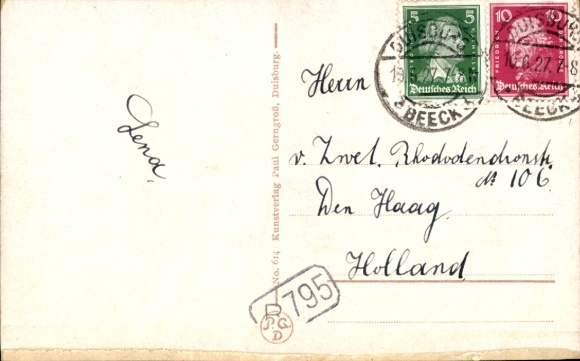 5 5
Deutsches Reich
10 10
FRIEDRICH
Deutsches Reich
DUISBURG
BEECK
DUISBURG
BEECK
Herrn
v. Zwet. Rhododendronstr.
№ 106
Den Haag
Holland
Lena.
No. 614 Kunstverlag Paul Gerngroß, Duisburg.
P.G.
D
B 795